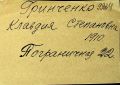 Гринченко
Клавдия Степановна
1910
Пограничну 22